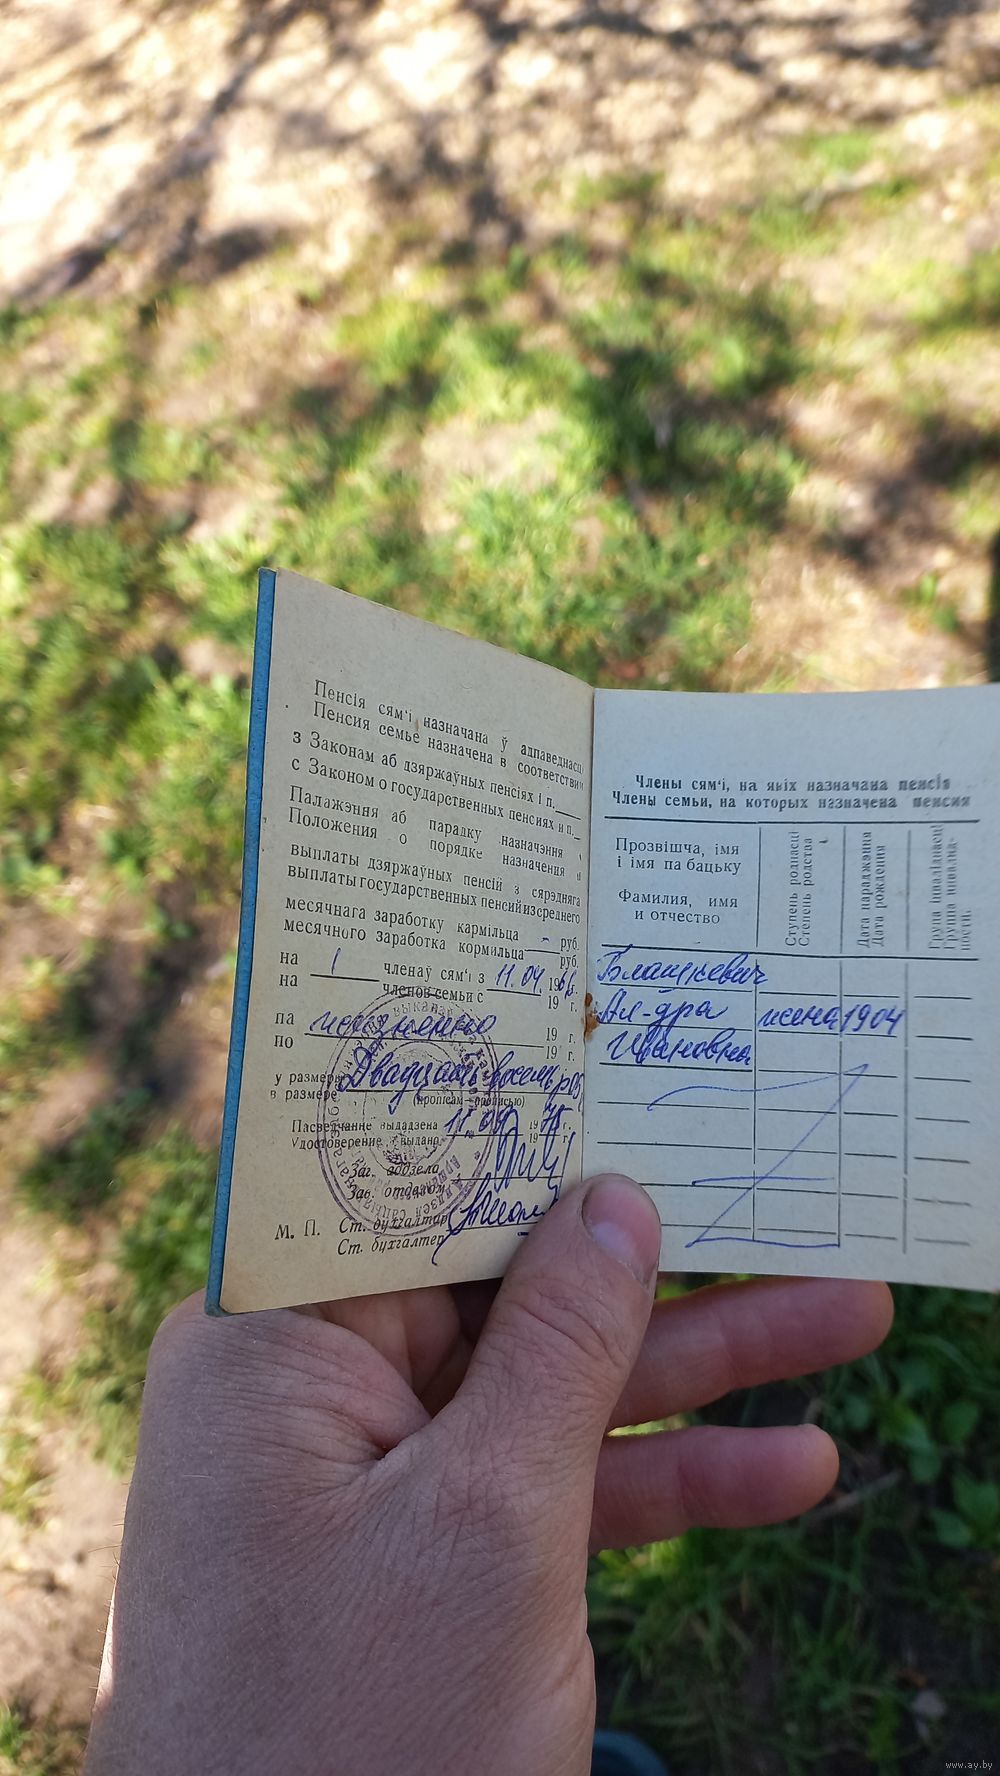 Пенсія сям'і назначана ў адпаведнасці
Пенсия семье назначена в соответствии
з Законам аб дзяржаўных пенсіях і п.
с Законом о государственных пенсиях и п.
Палажэння аб парадку назначэння і
Положения о порядке назначения и
выплаты дзяржаўных пенсій з сярэдняга
выплаты государственных пенсий из среднего
месячнага заработку кармільца - руб.
месячного заработка кормильца руб.
на 1 членаў сям'і з 11.04. 19 г.
на членов семьи с 19 г.
па 19 г.
по 19 г.
у размеры Двадцать восемь руб
в размере (пропісам—прописью)
Пасведчанне выдадзена 11 09 1975 г.
Удостоверение выдано 19 г.
Заг. аддзела
Зав. отделом
М. П. Ст. бухгалтар
Ст. бухгалтер
Члены сям'і, на якіх назначана пенсія
Члены семьи, на которых назначена пенсия
Прозвішча, імя
і імя па бацьку
Фамилия, имя
и отчество
Ступень роднасці
Степень родства
Дата нараджэння
Дата рождения
Група інваліднасці
Группа инвалид-
ности.
Блашкевич
Ал-дра жена 1904
Ивановна
www.ay.by